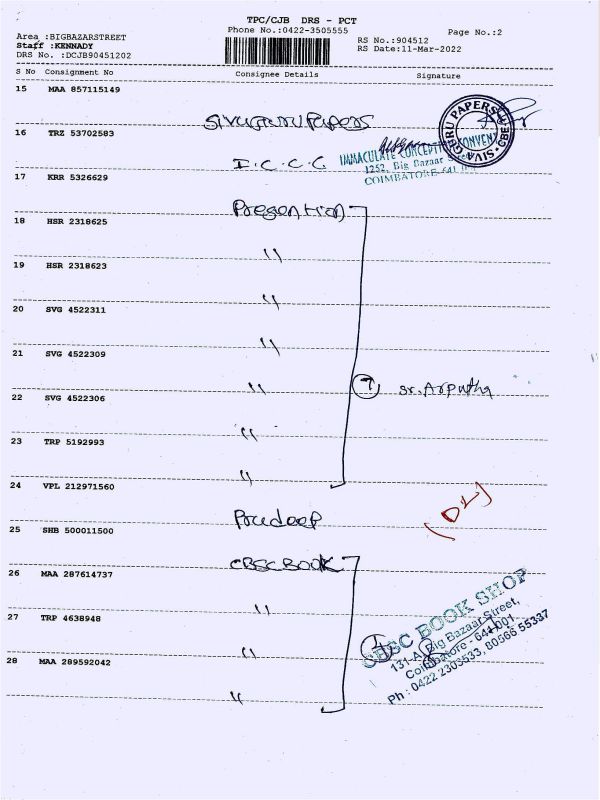 TPC/CJB DRS - PCT
Phone No.:0422-3505555
Page No.:2
Area :BIGBAZARSTREET
Staff :KENNADY
DRS No. :DCJB90451202
RS No.:904512
RS Date:11-Mar-2022
S No Consignment No Consignee Details Signature
15 MAA 857115149
Sivaguru Papers
SIVA GURU PAPERS CBE
16 TRZ 53702583
I.C.C.C.
IMMACULATE CONCEPTION CONVENT
1252, Big Bazaar
COIMBATORE-641
17 KRR 5326629
Presention
18 HSR 2318625
"
19 HSR 2318623
"
20 SVG 4522311
"
21 SVG 4522309
" 7 sr.Arputha
22 SVG 4522306
"
23 TRP 5192993
"
24 VPL 212971560
Pradeep
25 SHB 500011500
CBSC BOOK
26 MAA 287614737
"
27 TRP 4638948
"
28 MAA 289592042
"
4
CBSC BOOK SHOP
131-A, Big Bazaar Street,
Coimbatore - 641 001.
Ph : 0422 2303533, 80566 55337